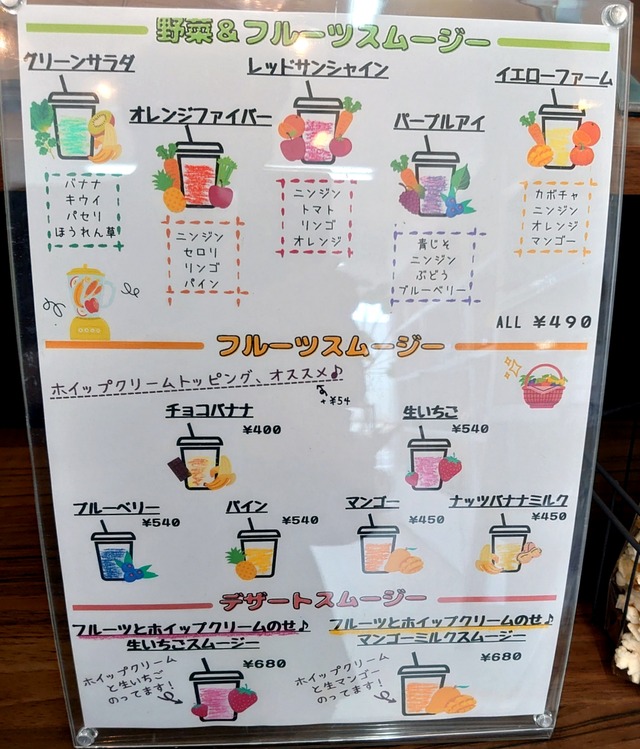 野菜&フルーツスムージー
グリーンサラダ
バナナ
キウイ
パセリ
ほうれん草
オレンジファイバー
ニンジン
セロリ
リンゴ
パイン
レッドサンシャイン
ニンジン
トマト
リンゴ
オレンジ
パープルアイ
青じそ
ニンジン
ぶどう
ブルーベリー
イエローファーム
カボチャ
ニンジン
オレンジ
マンゴー
ALL ¥490
フルーツスムージー
ホイップクリームトッピング、オススメ♪
+¥54
チョコバナナ
¥400
生いちご
¥540
ブルーベリー
¥540
パイン
¥540
マンゴー
¥450
ナッツバナナミルク
¥450
デザートスムージー
フルーツとホイップクリームのせ♪
生いちごスムージー
¥680
ホイップクリーム
と生いちご
のってます!
フルーツとホイップクリームのせ♪
マンゴーミルクスムージー
¥680
ホイップクリーム
と生マンゴー
のってます!